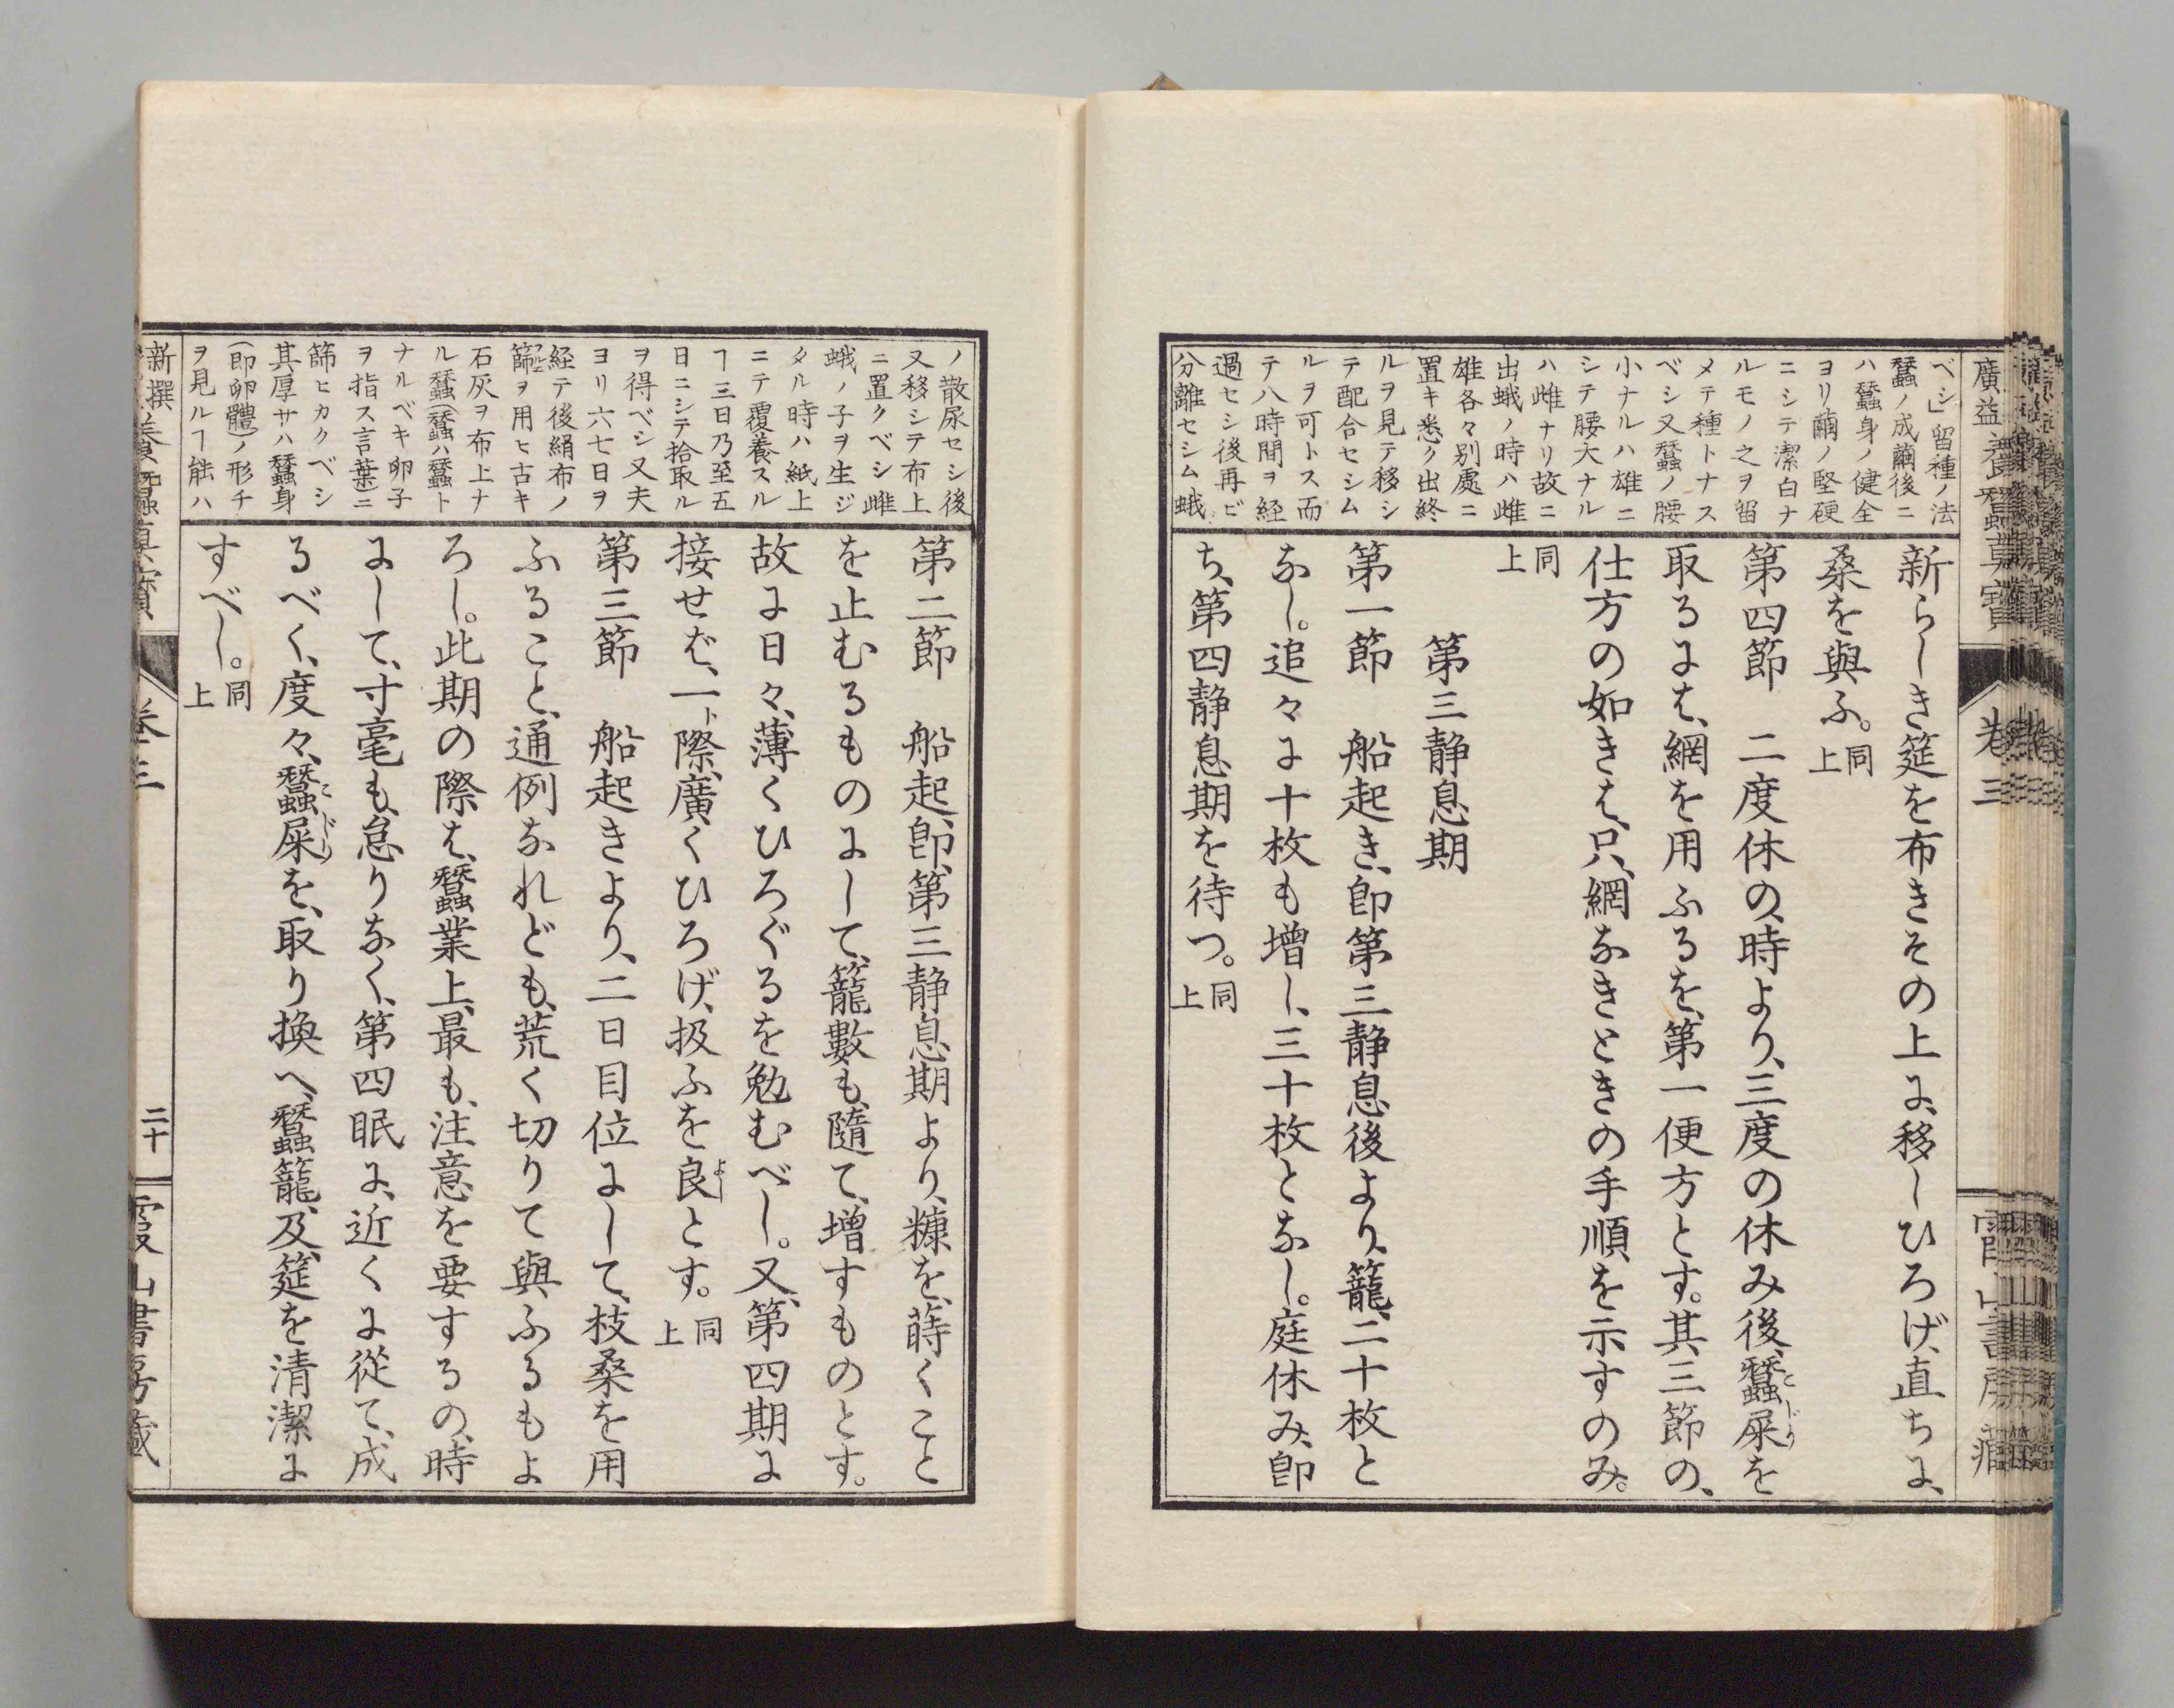 べシ」留種ノ法
蠶ノ成繭後ニ
ハ蠶身ノ健全
ヨリ繭ノ堅硬
ニシテ潔白ナ
ルモノ之ヲ留
メテ種トナス
ベシ又蠶ノ腰
小ナルハ雄ニ
シテ腰大ナル
ハ雌ナリ故ニ
出蛾ノ時ハ雌
雄各々別處ニ
置キ悉ク出終
ルヲ見テ移シ
テ配合セシム
ルヲ可トス而
テ八時間ヲ経
過セシ後再ビ
分離セシム蛾
新らしき筵を布きその上に、移しひろげ、直ちに、
桑を與ふ。同上
第四節 二度休の、時より、三度の休み後、蠶屎を
取るには、網を用ふるを、第一便方とす。其三節の、
仕方の如きは、只、網なきときの手順を示すのみ。
同上
第三静息期
第一節 船起き、即第三静息後より、籠、二十枚と
なし。追々に十枚も増し、三十枚となし。庭休み、即
ち、第四静息期を待つ。同上
ノ散尿セシ後
又移シテ布上
ニ置クベシ雌
蛾ノ子ヲ生ジ
タル時ハ紙上
ニテ覆養スル
ヿ三日乃至五
日ニシテ拾取ル
ヲ得ベシ又夫
ヨリ六七日ヲ
経テ後絹布ノ
篩ヲ用ヒ古キ
石灰ヲ布上ナ
ル蠶(蠶ハ蠶ト
ナルベキ卵子
ヲ指ス言葉)ニ
篩ヒカクベシ
其厚サハ蠶身
(即卵體)ノ形チ
ヲ見ルヿ能ハ
第二節 船起、即、第三静息期より、糠を、蒔くこと
を止むるものにして、籠數も、隨て、増すものとす。
故に日々、薄くひろぐるを勉むべし。又、第四期に
接せば、一ト際、廣くひろげ、扱ふを良とす。同上
第三節 船起きより、二日目位にして、枝桑を用
ふること、通例なれども、荒く切りて與ふるもよ
ろし。此期の際は、蠶業上、最も、注意を要するの、時
にして、寸毫も、怠りなく、第四眠に、近くに従て、成
るべく、度々、蠶屎を、取り換へ、蠶籠、及、筵を清潔に
すべし。同上
新撰養蠶眞寳
巻三
二十
霞山書房藏